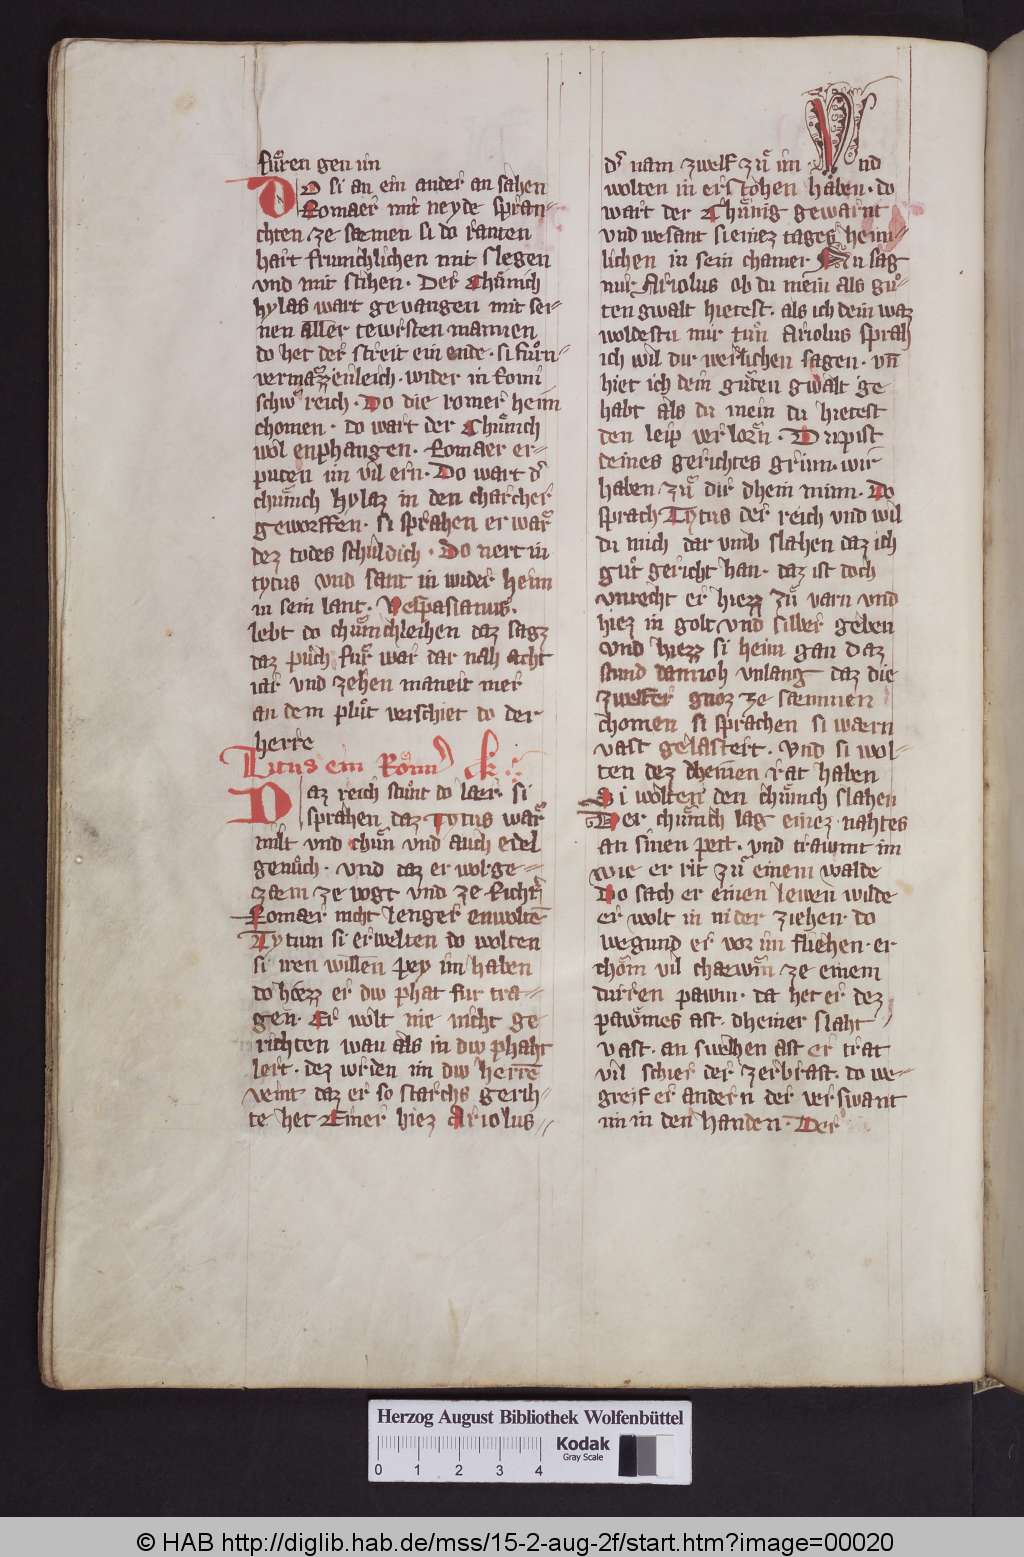 fuͦren gen im
DO si an ein ander an sahen
Romaer mit neyde spran-
chten ze samen si do ranten
hart frumchlichen mit slegen
vnd mit stichen. Der Chuͤnich
hylas wart gevangen mit sei-
nen aller tewrsten mannen
do het der streit ein ende. si fuͦrn
vermazzenleich. wider in Romi
schw reich. Do die romer heim
chomen. do wart der Chuͤnich
wol enphangen. Romaer er-
puten im vil ern. Do wart dˢ
chuͤnich hylaz in den charcher
geworffen. si sprahen er waͤr
dez todes schuldich. Do nert in
tytus vnd sant in wider heim
in sein lant. Vespasianus.
lebt do chuͤnchleihen daz sagz
daz puͦch fuͤr war dar nah acht
iar vnd zehen maneit mer
an dem pluͦt verschiet do der
herre
Titus ein Roͤmˢ ck
Daz reich stuͦnt do laer. si
sprahen daz Tytus waͤr
milt vnd chuͤn vnd auch edel
genuͦch. vnd daz er wol ge-
zaem ze vogt vnd ze Richtˢ
Romaer nicht lenger enwoltē
Tytum si erwelten do wolten
si iren willen pey im haben
do hiezz er diw phat fur tra-
gen. Er wolt nie nicht ge
richten wan als in diw phaht
lert. dez wrden im diw herrē
veint daz er so starchs gerih-
te het Einer hiez Ariolus
dˢ nam zwelf zuͤ im Vnd
wolten in erstohen haben. do
wart der Chuͤnig gewarnt
vnd besant si einez tages heim-
lichen in sein chamer Nu sag
mir Ariolus ob du mein als guͦ-
ten gwalt hietest. als ich dein waz
woldestu mir tuͤn Ariolus sprah
ich wil dir werlichen sagen. vn̄
hiet ich dein guͤten gwalt ge
habt als du mein du hietest
den leip verlorn. Du pist
deines gerichtes grim. wir
haben zuͤ dir dhein minn. Do
sprach Tytus der reich vnd wil
du mich dar vmb slahen daz ich
guͦt gericht han. daz ist doch
vnrecht er hiezz zuͤ varn vnd
hiez in golt vnd silber geben
vnd hiezz si heim gan Daz
stund dannoh vnlang daz die
zwelfer gnoz ze sæmmen
chomen si sprachen si wærn
vast gelastert. Vnd si wol-
ten dez dheinen rat haben
Si wolten den chuͤnich slahen
Der chuͤnich lag einez nahtes
an sinen pett. vnd trawmt im
wie er rit zuͤ einem walde
Do sach er einen lewen wilde
er wolt in nider ziehen. do
wegund er vor im fliehen. er
choͤm vil chaewm ze einem
durren pawm. da het er dez
pawͤmes ast. dheiner slaht
vast. an swelhen ast er trat
vil schier der zerbrast. do we-
greif er andern der verswant
im in den handen. Der
Herzog August Bibliothek Wolfenbüttel
Kodak
Gray Scale
0 1 2 3 4
© HAB http://diglib.hab.de/mss/15-2-aug-2f/start.htm?image=00020